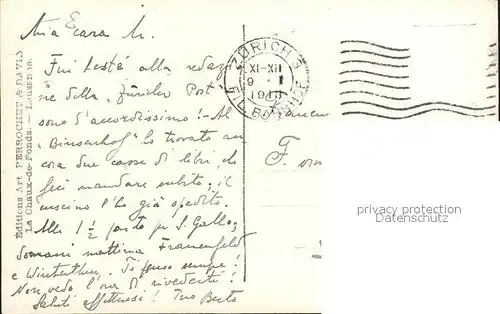 Mia Cara M.
Fui testé alla redaz
ne della "Züricher Post"
sono d'accordissimo! - Al
"Binsenhof" ho trovato an
cora due casse di libri, che
feci mandare subito; il
cuscino l'ho già spedito.
Alle 1½ parto per S. Gallo;
domani mattina Frauenfeld
e Winterthur. Ti penso sempre!
Non vedo l'ora di rivederti!
Saluti affettuosi! Tuo Berto
Editions Art PERROCHET & DAVID
La Chaux-de-Fonds. — Lausanne.
ZÜRICH
XI-XII
9 I
FIL. BAHNHOF
F.
privacy protection
watermark